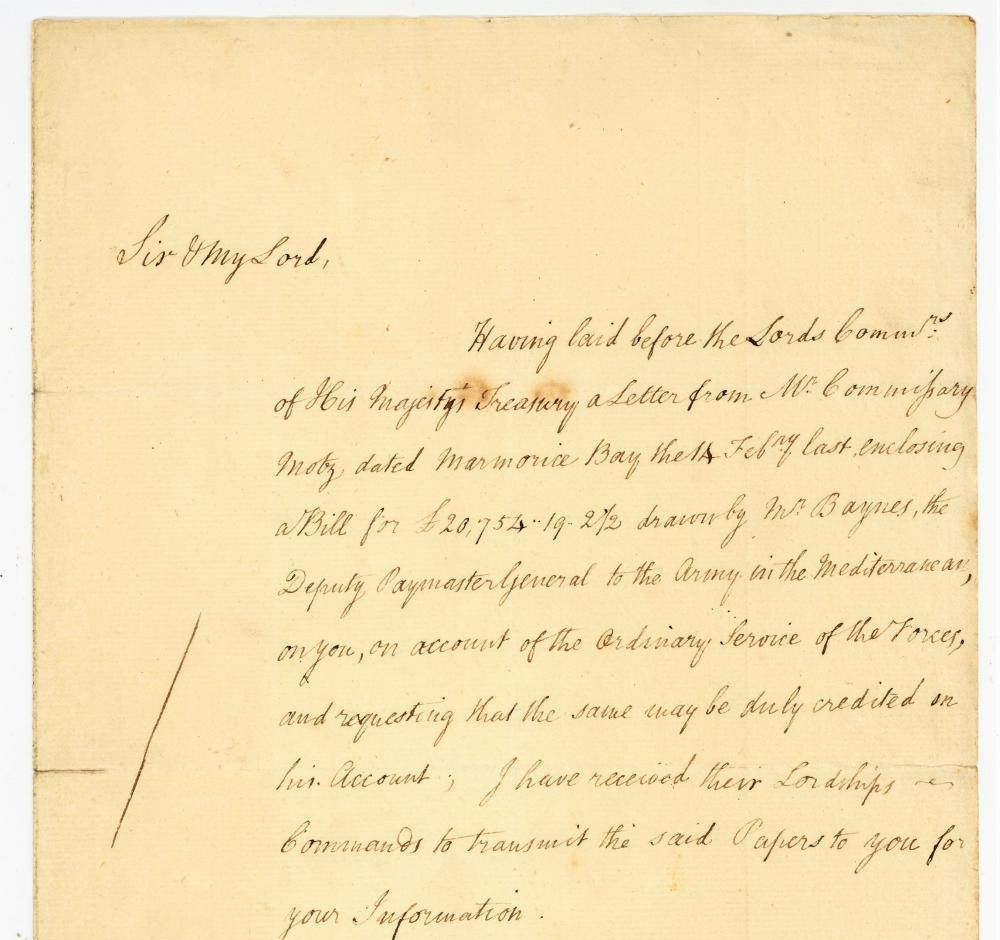 Sir & My Lord,
Having laid before the Lords Commrs.
of His Majesty's Treasury a Letter from Mr. Commissary
Motz, dated Marmorice Bay the 14 Febry last, enclosing
a Bill for £20,754..19-2½ drawn by Mr. Baynes, the
Deputy Paymaster General to the Army in the Mediterranean,
on you, on account of the Ordinary Service of the Forces,
and requesting that the same may be duly credited on
his Account; I have received their Lordships
Commands to transmit the said Papers to you for
your Information.